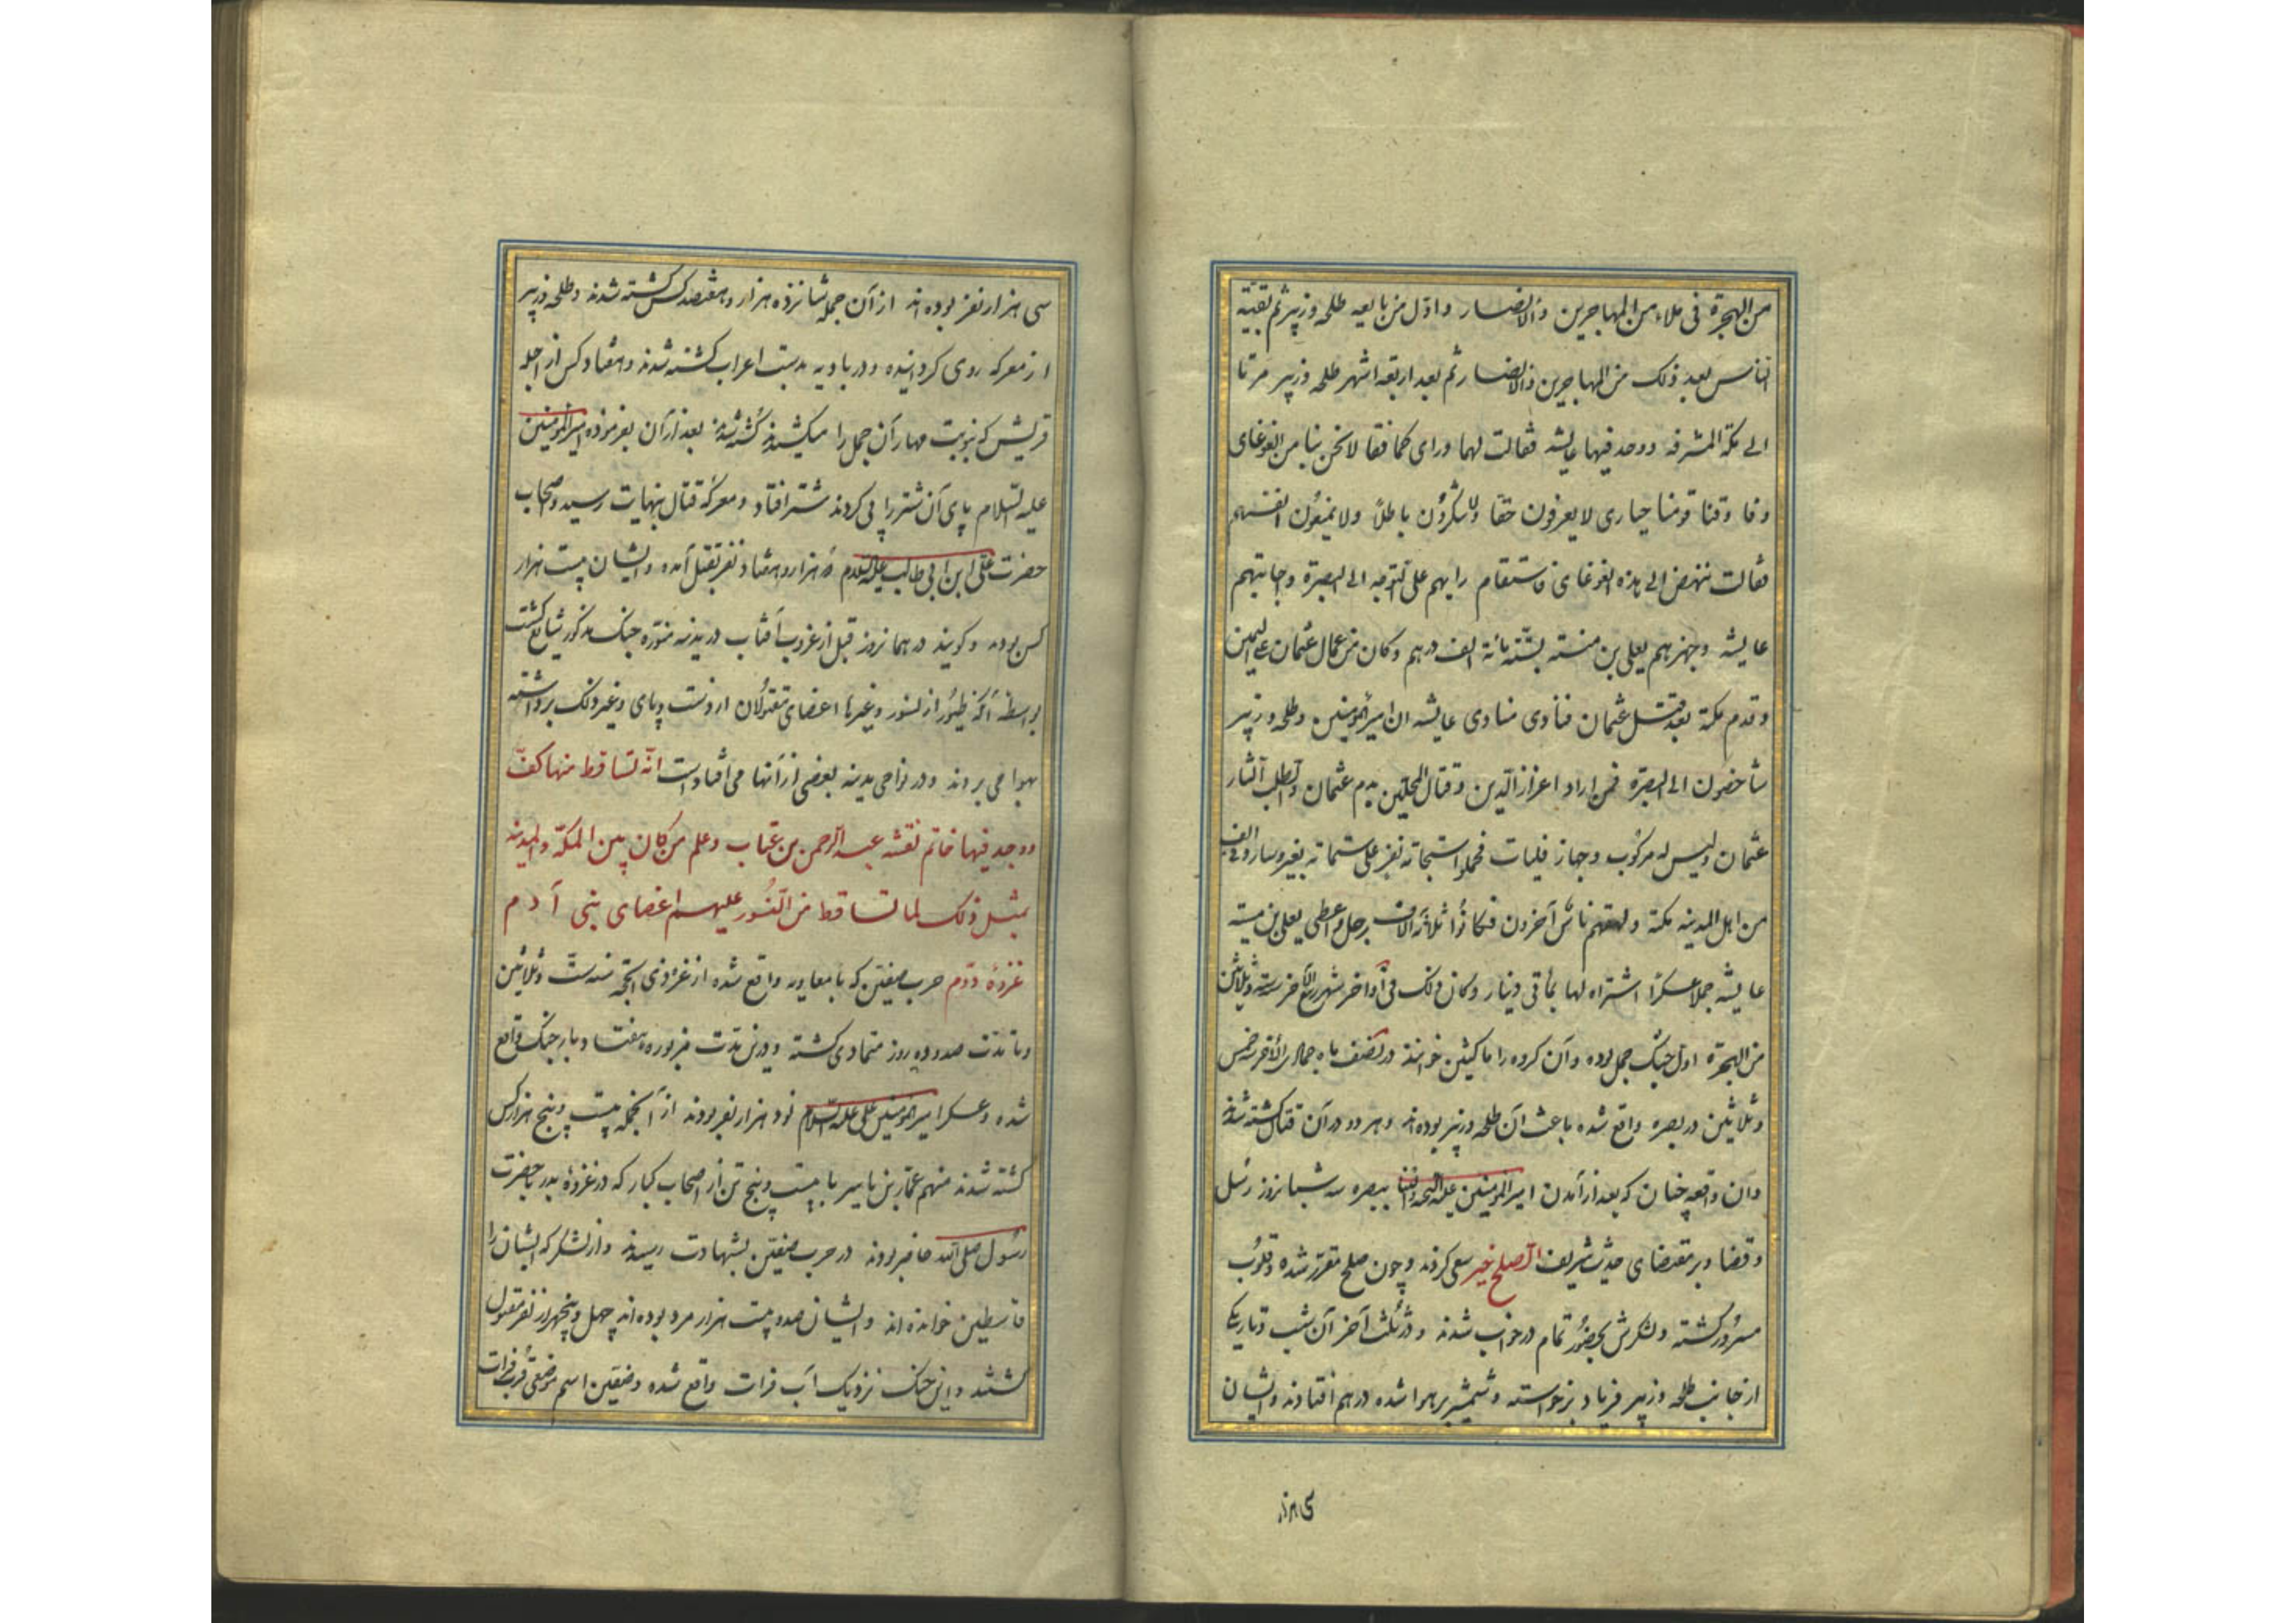 من الهجرة فی ملاء من المهاجرین والانصار واول من بایعه طلحه وزبیر ثم بقیّة
الناس بعد ذلک من المهاجرین والانصار ثم بعد اربعة اشهر طلحه وزبیر مرتا
الی مکة المشرفه ووجد فیها عایشه فقالت لهما ورای کما فقا لا نحن بنا من الغوغای
وفا وقنا قومنا حیاری لا یعرفون حقا ولا ینکرون باطلاً ولا یمنعون انفسهم
فقالت ننهض الی هذه الغوغای فاستقام رایهم علی التوجه الی البصرة وجابتهم
عایشه وجهزهم یعلی بن منیته بستّه مائة الف درهم وکان من عمال عثمان علی الیمن
وقدم مکة بعد قتل عثمان فنادی منادی عایشه ان امیر المومنین وطلحه وزبیر
شاخصون الی البصرة فمن اراد اعزاز الدین وقتال المحلین بدم عثمان والطلب آلثار
عثمان ولیس له مرکوب وجهاز فلیات فحملوا ستماته نفر علی ستماته بغیر وساروفی الف
من اهل المدینه مکة ولحقهم ناس آخرون فکانوا ثلاثه آلاف رجل واعطی یعلی بن منیته
عایشه جملا عسکرا اشتراه لها بمأتی دینار وکان ذلک فی اواخر شهر ربیع الآخر سنه ستّه وثلاثین
من الهجرة اول جنگ جمل بوده وآن کروه را ناکثین خوانند در نصف ماه جمادی الآخر سنه خمس
وثلاثین در بصره واقع شده باعث آن طلحه وزبیر بوده اند وهر دو در آن قتال کشته شدند
وآن واقعه چنان که بعد از آمدن امیر المومنین علیه التحیه والثنا ببصره سه شبانروز رسل
وقضا وبر مقتضای حدیث شریف الصلح خیر سعی کردند وچون صلح مقرر شده وقلوب
مسرور کشته ولشکرش بحضور تمام در خواب شدند ودر ثلث آخر آن شب وتاریک
از جانب طلحه وزبیر فریاد برخواسته وشمشیر بر هوا شده در هم افتادند وایشان
سی هزار
سی هزار نفر بوده اند از آن جمله شانزده هزار وهفتصد کس کشته شدند وطلحه وزبیر
از معرکه روی کردانیده ودر بادیه بدست اعراب کشته شدند وهفتاد کس از اجله
قریش که بنوبت مهار آن جمل را میکشیدند کشته شدند بعد از آن بفرموده امیر المومنین
علیه السلام پای آن شتر را پی کردند شتر افتاد ومعرکه قتال بنهایت رسید واصحاب
حضرت علی ابن ابی طالب علیه السلام هزار وهفتاد نفر بقتل آمده وایشان بیست هزار
کس بوده وکویند در همانروز قبل از غروب آفتاب در مدینه منوّره جنک مذکور شایع کشت
بواسطه آنکه طیور از نسور وغیرها اعضای مقتولان از دست وپای وغیر ذلک برداشته
بهوا می بردند ودر نواحی مدینه بعضی از آنها می افتاد است انّه تساقط منها کفّ
ووجد فیها خاتم نقشه عبد الرحمن بن عتاب وعلم من کان بین المکّة والمدینه
بمثل ذلک لما تساقط من النسور علیهم اعضای بنی آدم
غزوهٔ دوّم حرب صفین که با معاویه واقع شده از غره ذی الحجّه سنه ستّ وثلاثین
وتا مدّت صد وده روز متمادی کشته ودرین مدّت مزبوره هفتاد بار جنک واقع
شده وعسکر امیر المومنین علی علیه السلام نود هزار نفر بودند از آنجمله بیست وپنج هزار کس
کشته شدند منهم عمّار بن یاسر با بیست وپنج تن از اصحاب کبار که در غزوهٔ بدر با حضرت
رسول صلی الله حاضر بودند در حرب صفین بشهادت رسیدند واز لشکر که ایشان را
قاسطین خوانده اند وایشان صد وبیست هزار مرد بوده اند چهل وپنجهزار نفر مقتول
کشتند واین جنک نزدیک آب فرات واقع شده وصفین اسم موضعی قرب فرات